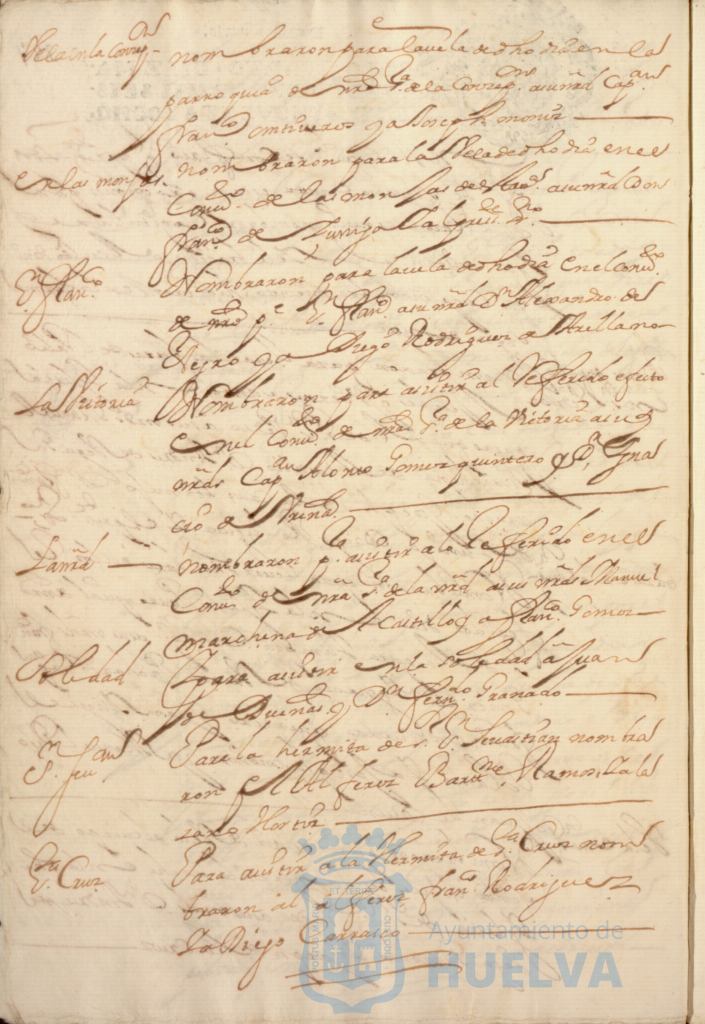 Vela en la Concepn
nombraron para la vela de dho dia en la
parroquia de nra sa de la Concepn a su md Capan
franco ontiveros y a Joseph
en las monjas
nombraron para la Vela de dho dia en el
Convto de las monjas de a su md Don
franco de Zuniga
Sn franco
Nombraron para la vela de dho dia en el Convto
de nro pe Sn franco a su md Dn Alexandro de
y a Diego Rodriguez de Arellano
La Vitoria
Nombraron para asistir al Referido efecto
en el Convto de nra sa de la Vitoria a sus
mds Capan Alonso Gomez quintero y Dn Igna
cio de
La md
nombraron pa asistir a lo Referido en el
Convto de nra sa de la md a sus mds Manuel
Marchena de el Castillo y a franco Gomez
Soledad
para asistir en la Soledad a Juan
de Dueñas y Dn ferndo Granado
Sn
Para la hermita de sr Sn Sevastian nombra
ron Al Alferez Barme Ramos, y a la
zaro
Sta Cruz
Para asistir a la Hermita de Sta Cruz nom
braron al alferez franco Rodriguez
y a Diego Carrasco
Ayuntamiento de
HUELVA